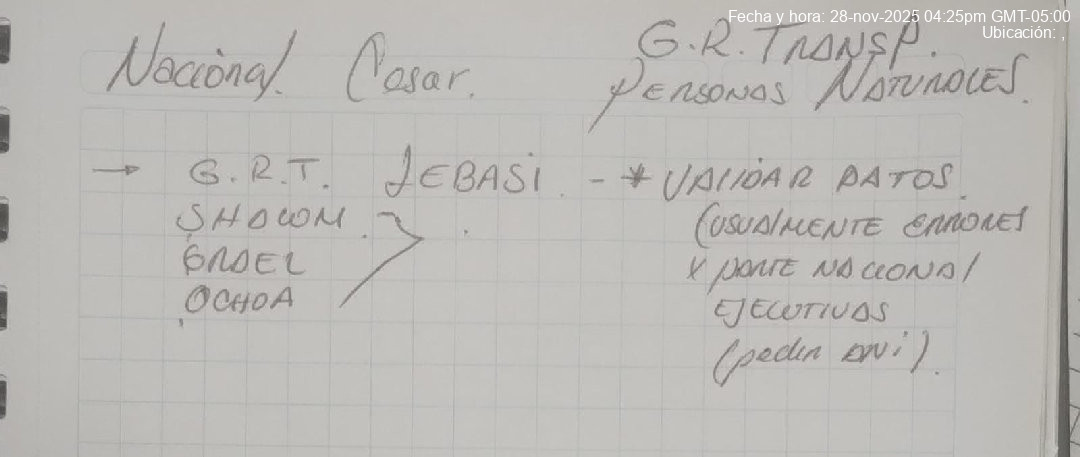 Fecha y hora: 28-nov-2025 04:25pm GMT-05:00
Ubicación: ,
Nacional. Casar.
G.R. TRANSP.
PERSONAS NATURALES.
→ G.R.T. JEBASI. - * VALIDAR DATOS.
SHALOM.
(USUALMENTE ERRORES
GRAEL
X PARTE NACIONAL
OCHOA
EJECUTIVAS
(pedir DNi).